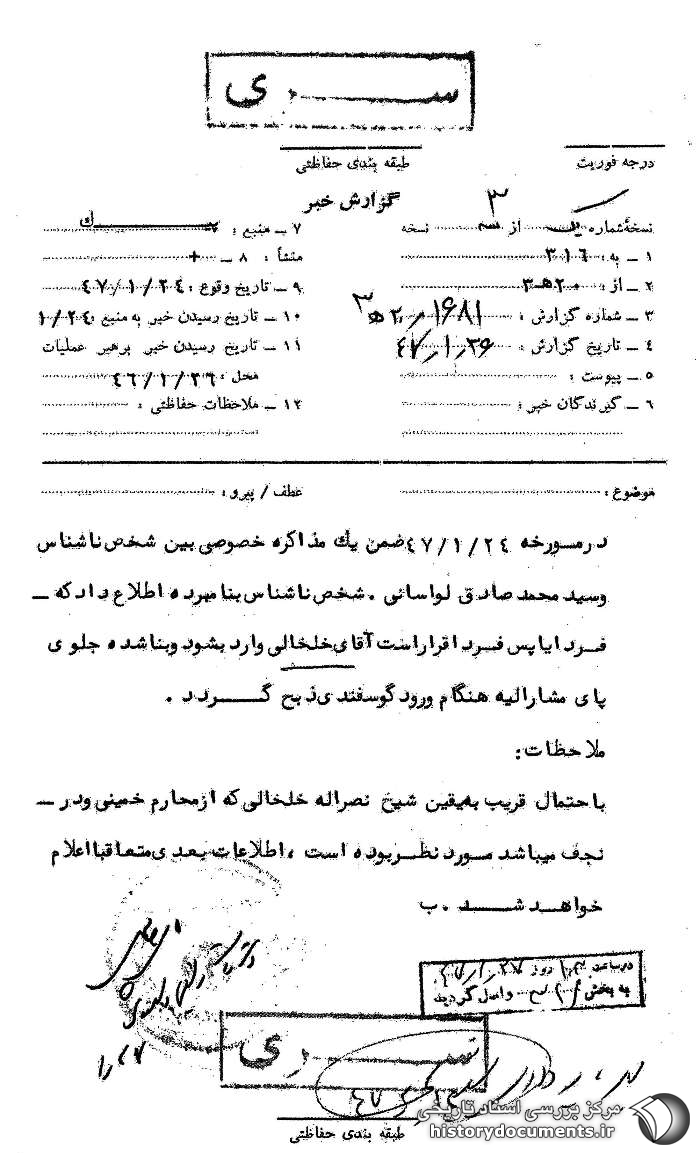 ســـری
درجه فوریت
طبقه بندی حفاظتی
گزارش خبر
نسخهٔ شماره یک از سه نسخه
۳
۱ ــ به : ۳۱۶
۲ ــ از : ۲۰ ه‍ ۳
۳ ــ شماره گزارش :
۴ ــ تاریخ گزارش : ۴۷/۱/۲۶
۵ ــ پیوست :
۶ ــ گیرندگان خبر :
۷ ــ منبع :
۸ ــ منشأ : +
۹ ــ تاریخ وقوع : ۴۷/۱/۲۴
۱۰ ــ تاریخ رسیدن خبر به منبع : ۱/۲۴
۱۱ ــ تاریخ رسیدن خبر برهبر عملیات
محل : ۴۶/۱/۲۶
۱۲ ــ ملاحظات حفاظتی :
موضوع :
عطف / پیرو :
درمورخه ۴۷/۱/۲۴ ضمن یك مذاکره خصوصی بین شخص ناشناس
وسید محمد صادق لواسانی . شخص ناشناس بنامبرده اطلاع داد که ــ
فردا یا پس فردا قرار است آقای خلخالی وارد بشود و بنا شده جلوی
پای مشارالیه هنگام ورود گوسفندی ذبح گـــردد .
ملاحظات :
با احتمال قریب به یقین شیخ نصراله خلخالی که از محارم خمینی و در ــ
نجف میباشد مورد نظر بوده است ، اطلاعات بعدی متعاقبا اعلام
خواهد شــد . ب
در ساعت روز ۴۷/۱/۲۷
به بخش واصل گردید
ســـری
طبقه بندی حفاظتی
مرکز بررسی اسناد تاریخی
historydocuments.ir